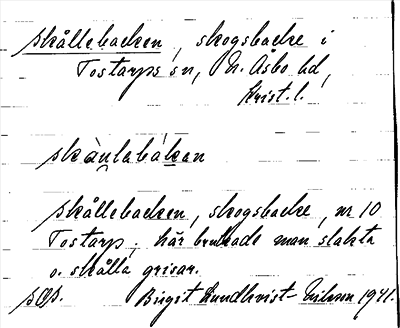 Skållebacken, skogsbacke i
Tostarps sn, N. Åsbo hd,
Krist. l.
skållebacken, skogsbacke, nr 10
Tostarp; här brukade man slakta
o. skålla grisar.
Birgit Lundkvist-Nilsson 1941.